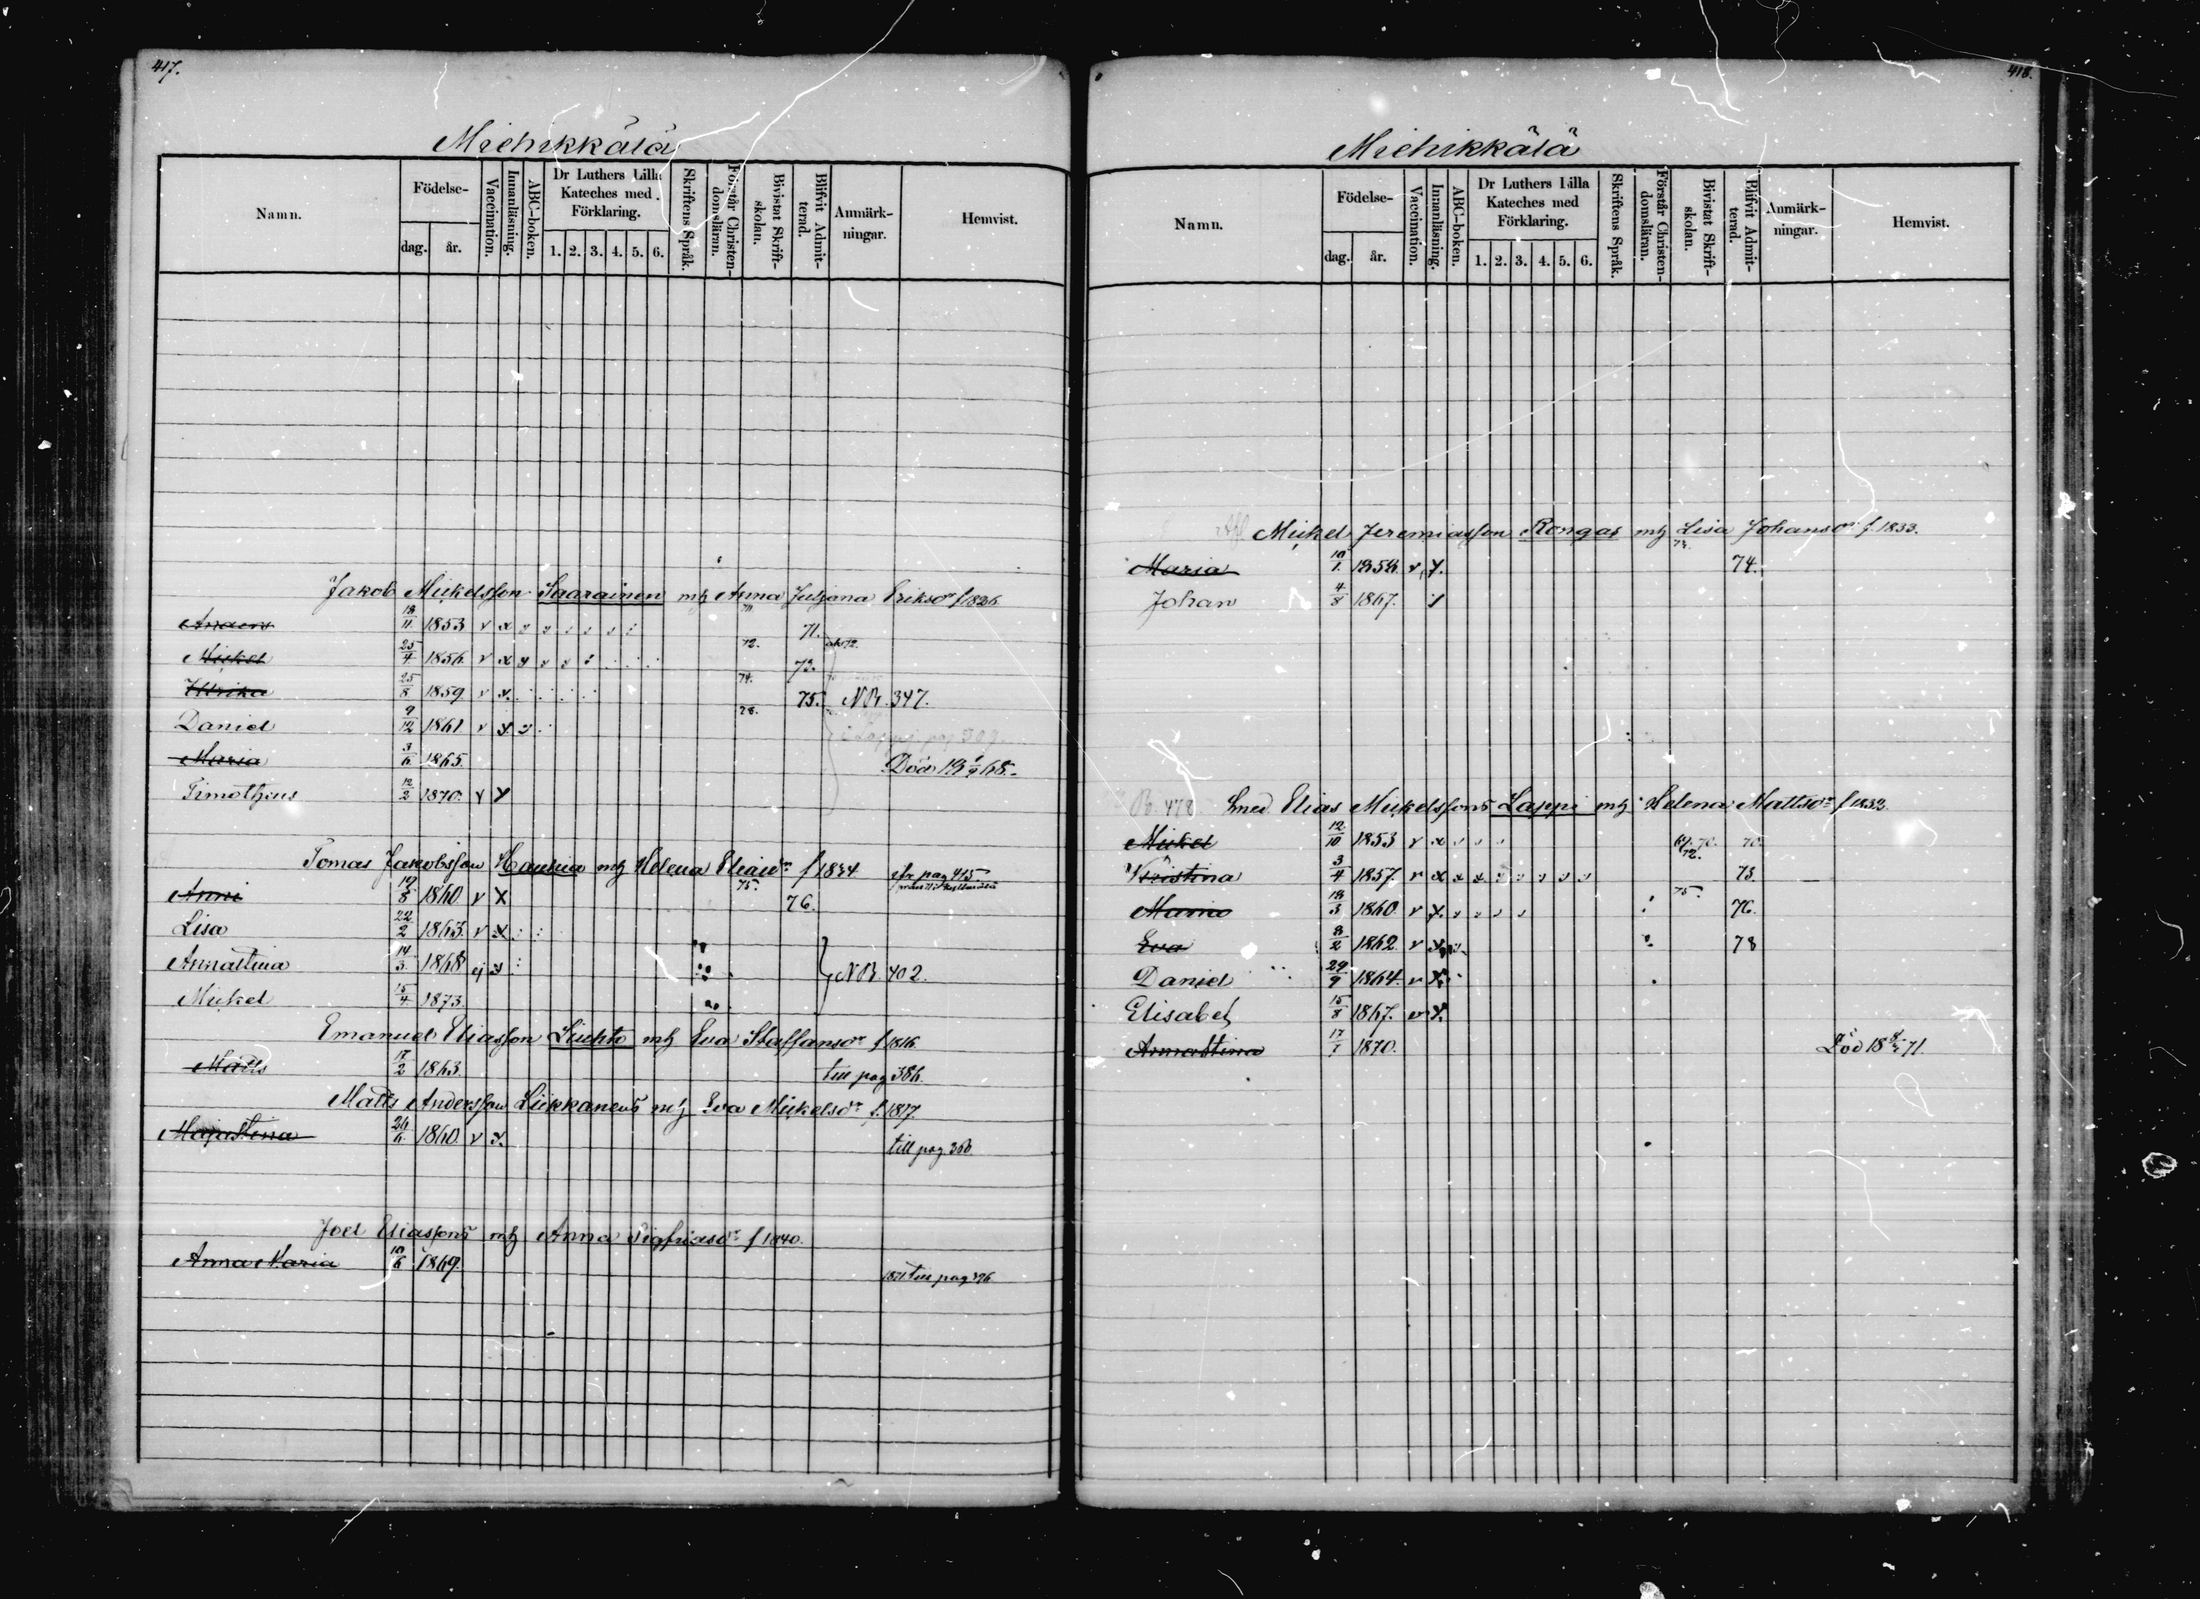 417.
Miehikkälä
Namn. Födelse- dag. år. Vaccination. Innanläsning. ABC-boken. Dr Luthers Lilla Kateches med Förklaring. 1. 2. 3. 4. 5. 6. Skriftens Språk. Förstår Christen-domsläran. Bivistat Skrift-skolan. Blifvit Admit-terad. Anmärk-ningar. Hemvist.
Jakob Mickelsson Saarainen mh Anna Juliana Eriksdr f 1826
Anders 18/11 1853 v x 71.
Mickel 25/4 1856 v x 72. 73.
Ulrika 25/8 1859 v x 74. 75. NB. 347.
Daniel 9/12 1861 v x 78.
Maria 3/6 1865. Död 18 1/9 68.
Timotheus 12/2 1870. v x
Tomas Jakobsson Hauhia mh Helena Eliasdr f 1834 pag 415
Anni 19/5 1860 v x 75. 76.
Lisa 22/2 1863. v x
Annastina 14/3 1868 ej x NB 402.
Mickel 15/4 1873.
Emanuel Eliasson Liuhto mh Eva Staffansdr f 1816
Matts 17/2 1863. till pag 386.
Matts Andersson Liikkanens mh Eva Mickelsdr f. 1817.
Majastina 26/6 1860 v x. till pag.
Joel Eliassons mh Anna Sigfridsdr f 1840.
Anna Maria 10/6 1869. 1871 till pag
418.
Miehikkälä
Namn. Födelse- dag. år. Vaccination. Innanläsning. ABC-boken. Dr Luthers Lilla Kateches med Förklaring. 1. 2. 3. 4. 5. 6. Skriftens Språk. Förstår Christen-domsläran. Bivistat Skrift-skolan. Blifvit Admit-terad. Anmärk-ningar. Hemvist.
Mickel Jeremiasson Rongas mh Lisa Johansdr f. 1833.
Maria 10/1 1858. v x. 73. 74.
Johan 4/8 1867.
478 Smed Elias Mickelssons Lappi mh Helena Mattsdr f 1832
Mickel 12/10 1853 v x 69. 70. 70.
Kristina 3/4 1857. v x 72. 73.
Maria 18/3 1860. v x. 75. 76.
Eva 8/2 1862 v x 78
Daniel 29/9 1864. v x
Elisabet 15/8 1867. v x.
Annastina 17/1 1870. Död 18 71.